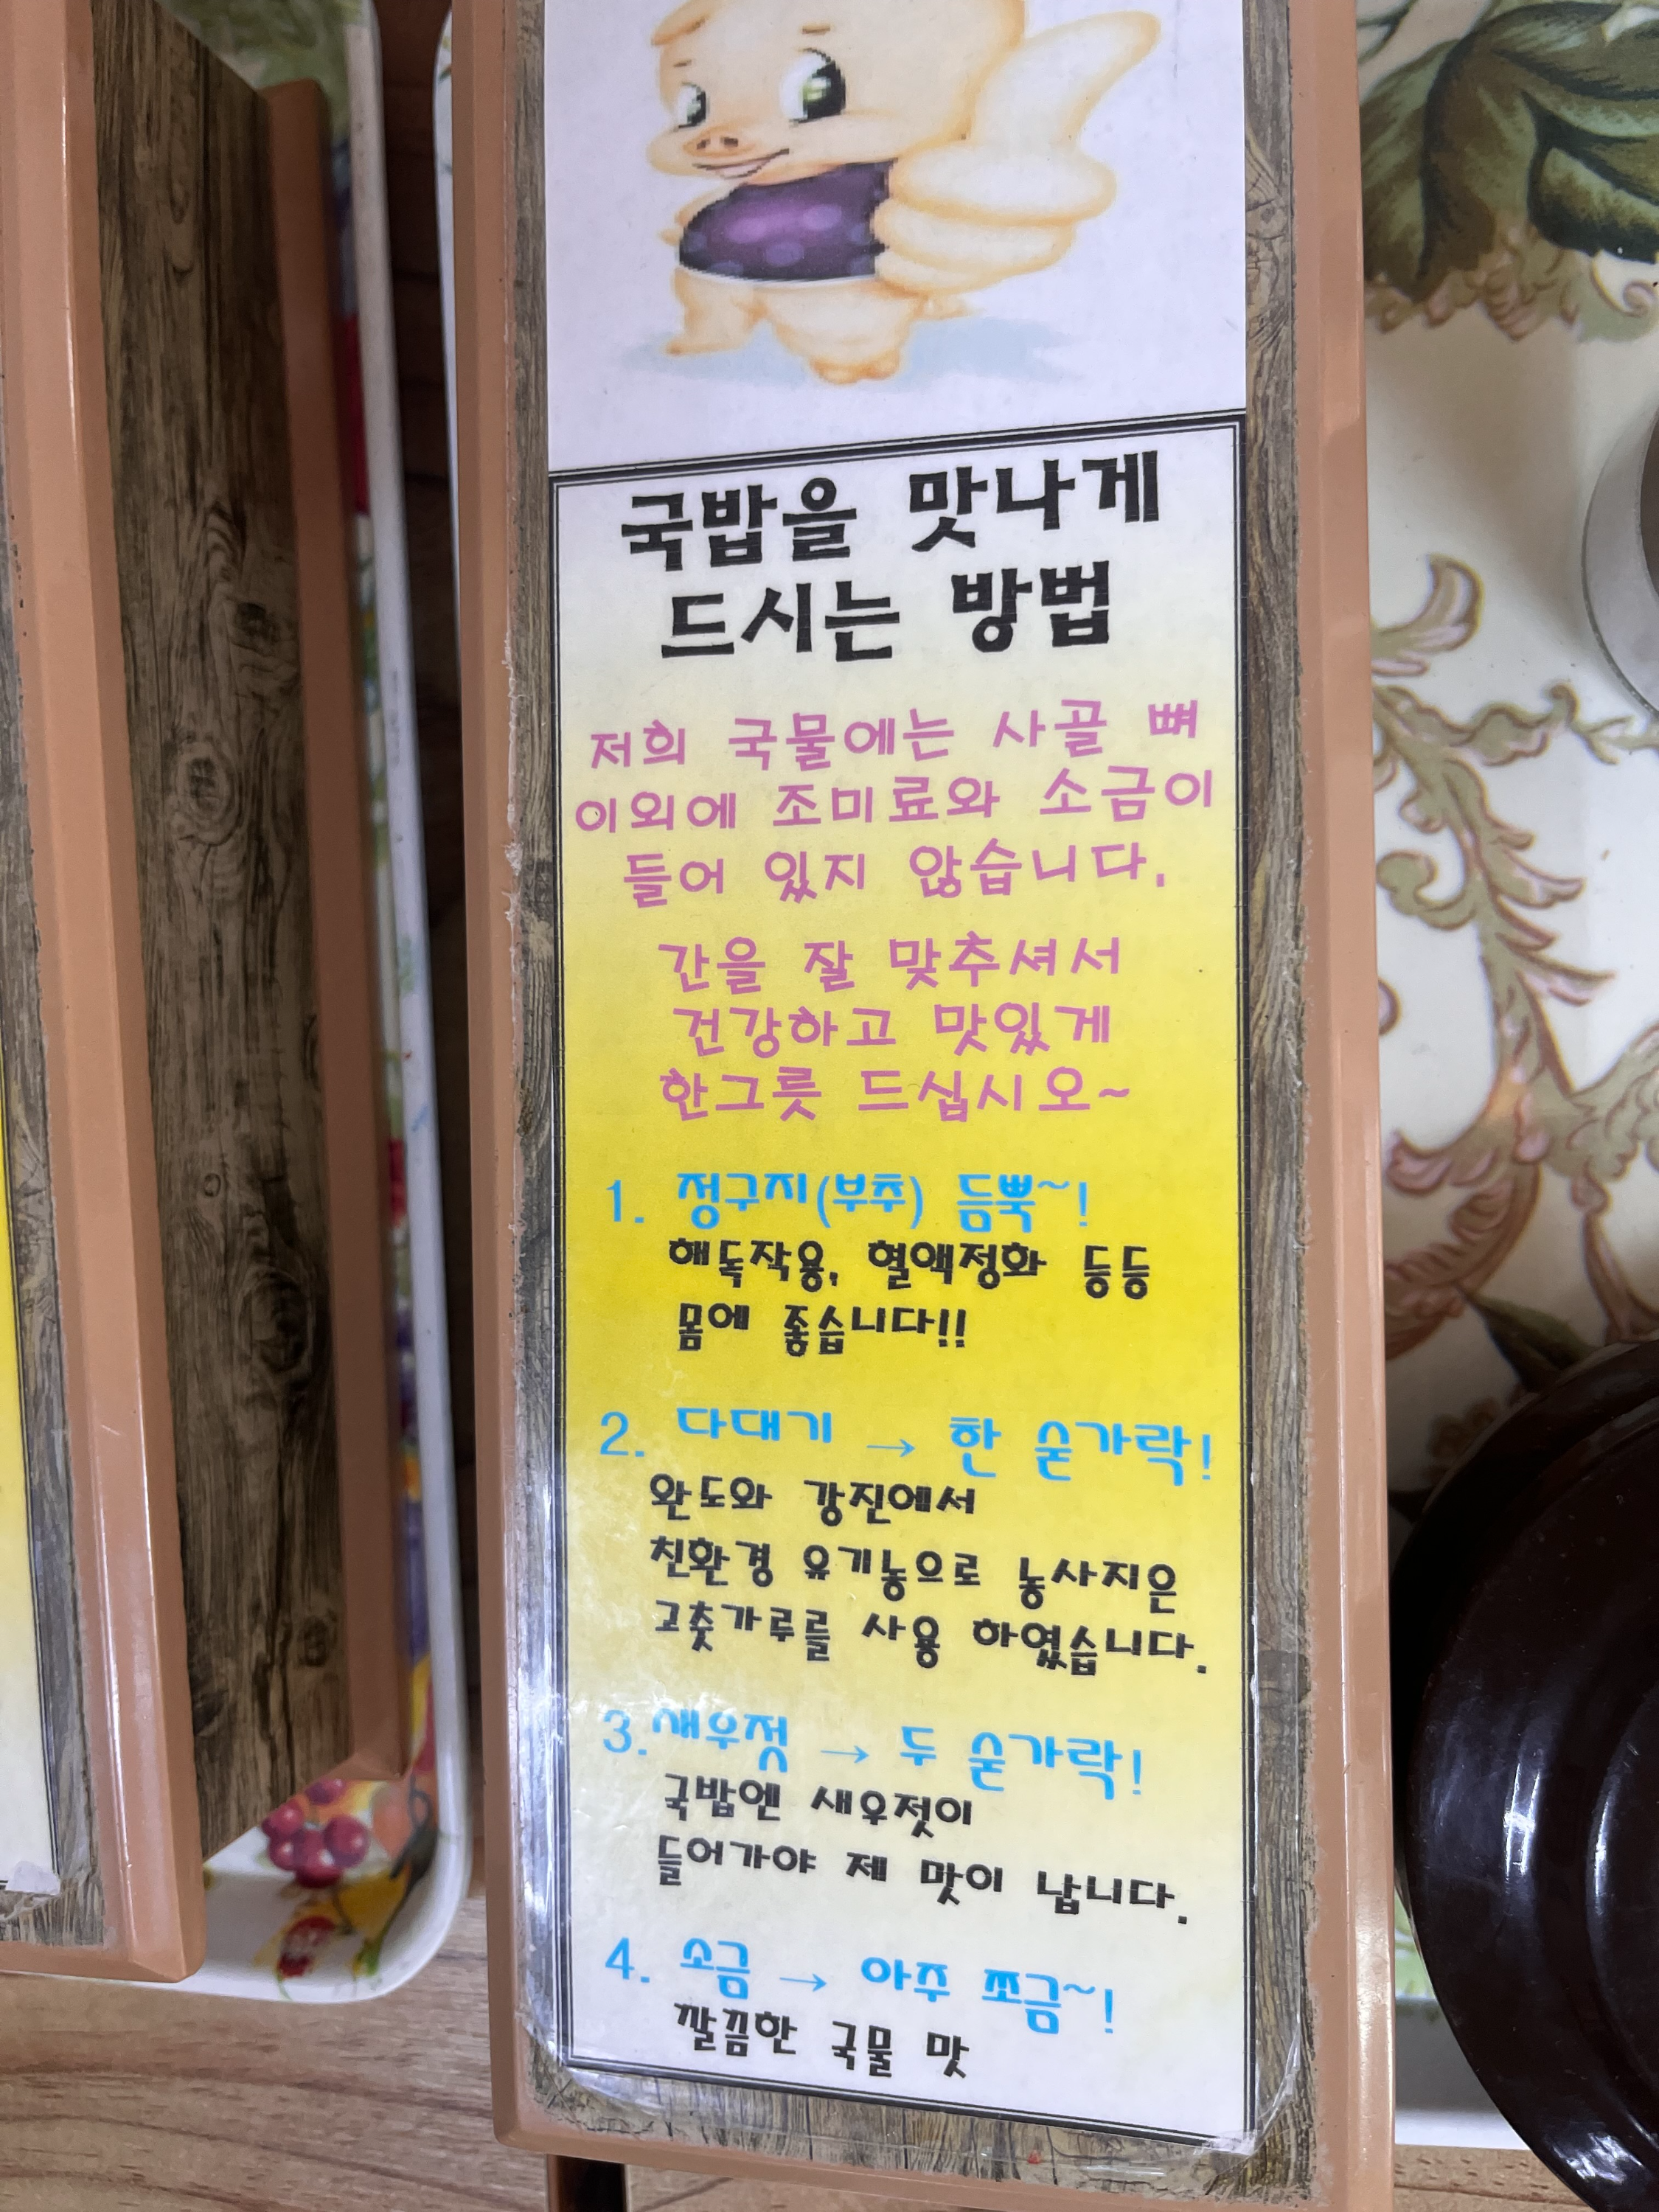 국밥을 맛나게
드시는 방법
저희 국물에는 사골 뼈
이외에 조미료와 소금이
들어 있지 않습니다.
간을 잘 맞추셔서
건강하고 맛있게
한그릇 드십시오~
1. 정구지(부추) 듬뿍~!
해독작용, 혈액정화 등등
몸에 좋습니다!!
2. 다대기 → 한 숟가락!
완도와 강진에서
친환경 유기농으로 농사지은
고춧가루를 사용 하였습니다.
3.새우젓 → 두 숟가락!
국밥엔 새우젓이
들어가야 제 맛이 납니다.
4. 소금 → 아주 쪼금~!
깔끔한 국물 맛